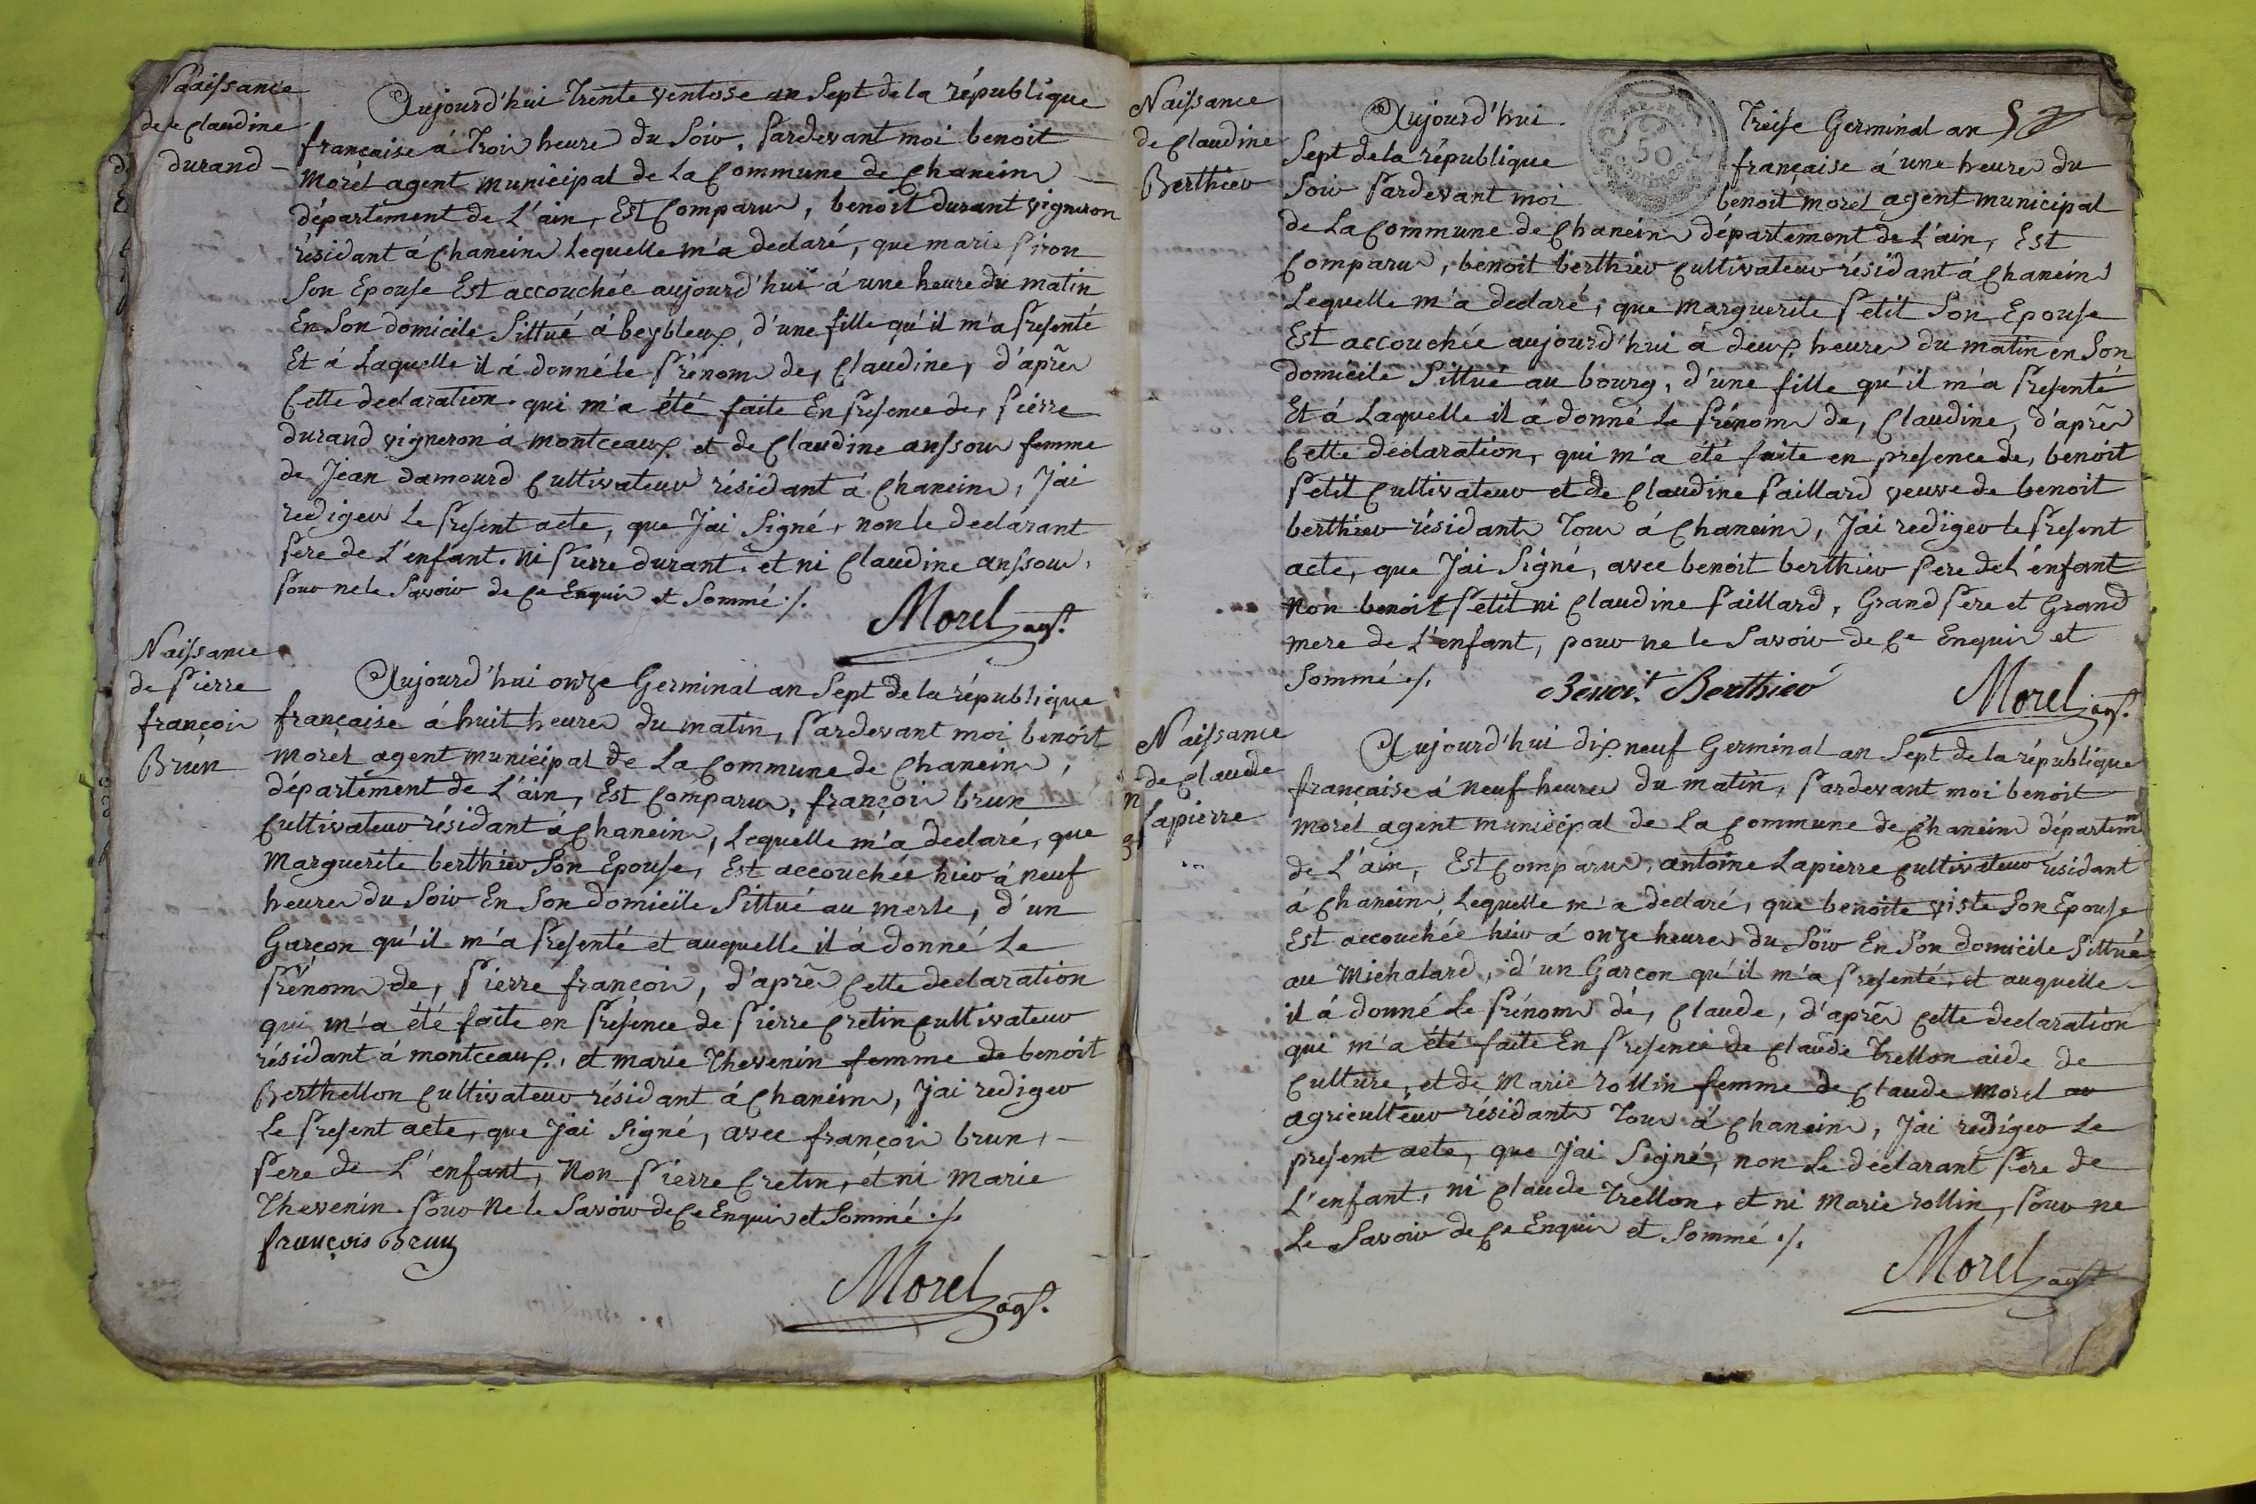 Naaissance
de Claudine
durand
Aujourd'hui Trente ventose an Sept de la république
française á Trois heure du Soir, Pardevant moi benoit
Morel agent municipal de la Commune de Chaneins
département de L'ain, Est Comparu, benoit durant vigneron
résidant á Chaneins Lequelle m'a declaré, que marie Piron
Son Epouse Est accouchée aujourd'hui á une heure du matin
En Son domicile Sittué á beybleux, d'une fille qu'il m'a Presenté
Et á Laquelle il á donné le Prénom de, Claudine, d'après
Cette declaration qui m'a été faite En Presence de, Pierre
durand vigneron á montceaux et de Claudine anssou femme
de Jean damourd Cultivateur résidant á Chaneins, J'ai
rediger Le Present acte, que J'ai Signé, non le declarant
Pere de L'enfant. Ni Pierre durant. et ni Claudine anssou,
Pour ne le Savoir de Ce Enquis et Sommé ./.
Morel agt.
Naissance
de Pierre
françois
Brun
Aujourd'hui onze Germinal an Sept de la république
française á huit heures du matin, Pardevant moi benoit
Morel agent municipal de La Commune de Chaneins,
département de L'ain, Est Comparu, françois brun
Cultivateur résidant á Chaneins, Lequelle m'a declaré, que
Marguerite berthier Son Epouse, Est accouchée hier á neuf
heures du Soir En Son domicile Sittué au merle, d'un
Garçon qu'il m'a Presenté et auquelle il á donné Le
Prénom de, Pierre françois, d'après Cette declaration
qui m'a été faite en Présence de Pierre Cretin Cultivateur
résidant á montceaux, et marie Thevenin femme de benoit
Berthellon Cultivateur résidant á Chaneins, J'ai rediger
Le Present acte, que J'ai Signé, avec françois brun,
Pere de L'enfant, Non Pierre Cretin, et ni Marie
Thevenin. Pour Ne le Savoir de Ce Enquis et Sommé ./.
françois Brun
Morel agt.
Naissance
de Claudine
Berthier
Aujourd'hui Treise Germinal an
Sept de la république française á une heures du
Soir Pardevant moi benoit morel agent municipal
50
de La Commune de Chaneins département de L'ain, Est
Comparu, benoit berthier Cultivateur résidant á Chaneins
Lequelle m'a declaré, que marguerite Petit Son Epouse
Est accouchée aujourd'hui á deux heures du matin en Son
domicile Sittué au bourg, d'une fille qu'il m'a Presenté
Et á Laquelle il á donné Le Prénom de, Claudine, d'après
Cette declaration, qui m'a été faite en presence de, benoit
Petit Cultivateur et de Claudine Paillard veuve de benoit
berthier résidant Tous á Chaneins, J'ai rediger le Present
acte, que J'ai Signé, avec benoit berthier Pere de L'enfant
Non benoit Petit ni Claudine Paillard, Grand Pere et Grand
mere de L'enfant, pour ne le Savoir de Ce Enquis et
Sommé ./.
Benoit Berthier
Morel agt.
Naissance
de Claude
Lapierre
Aujourd'hui dix neuf Germinal an Sept de la république
française á Neuf heures du matin, Pardevant moi benoit
Morel agent municipal de La Commune de Chaneins départemn
de L'ain, Est Comparu, antoine Lapierre Cultivateur résidant
á Chaneins, Lequelle m'a declaré, que benoite viste Son Epouse
Est accouchée hier á onze heures du Soir En Son domicile Sittué
au Michalard, d'un Garçon qu'il m'a presenté, et auquelle
il á donné Le Prénom de, Claude, d'après Cette declaration
qui m'a été faite En Presence de Claude Trellon aide de
Culture, et de Marie rollin femme de Claude Morel
agriculteur résidant Tous á Chaneins, J'ai rediger Le
present acte, que J'ai Signé, non Le declarant Pere de
L'enfant, ni Claude Trellon, et ni Marie rollin, Pour ne
Le Savoir de Ce Enquis et Sommé ./.
Morel agt.